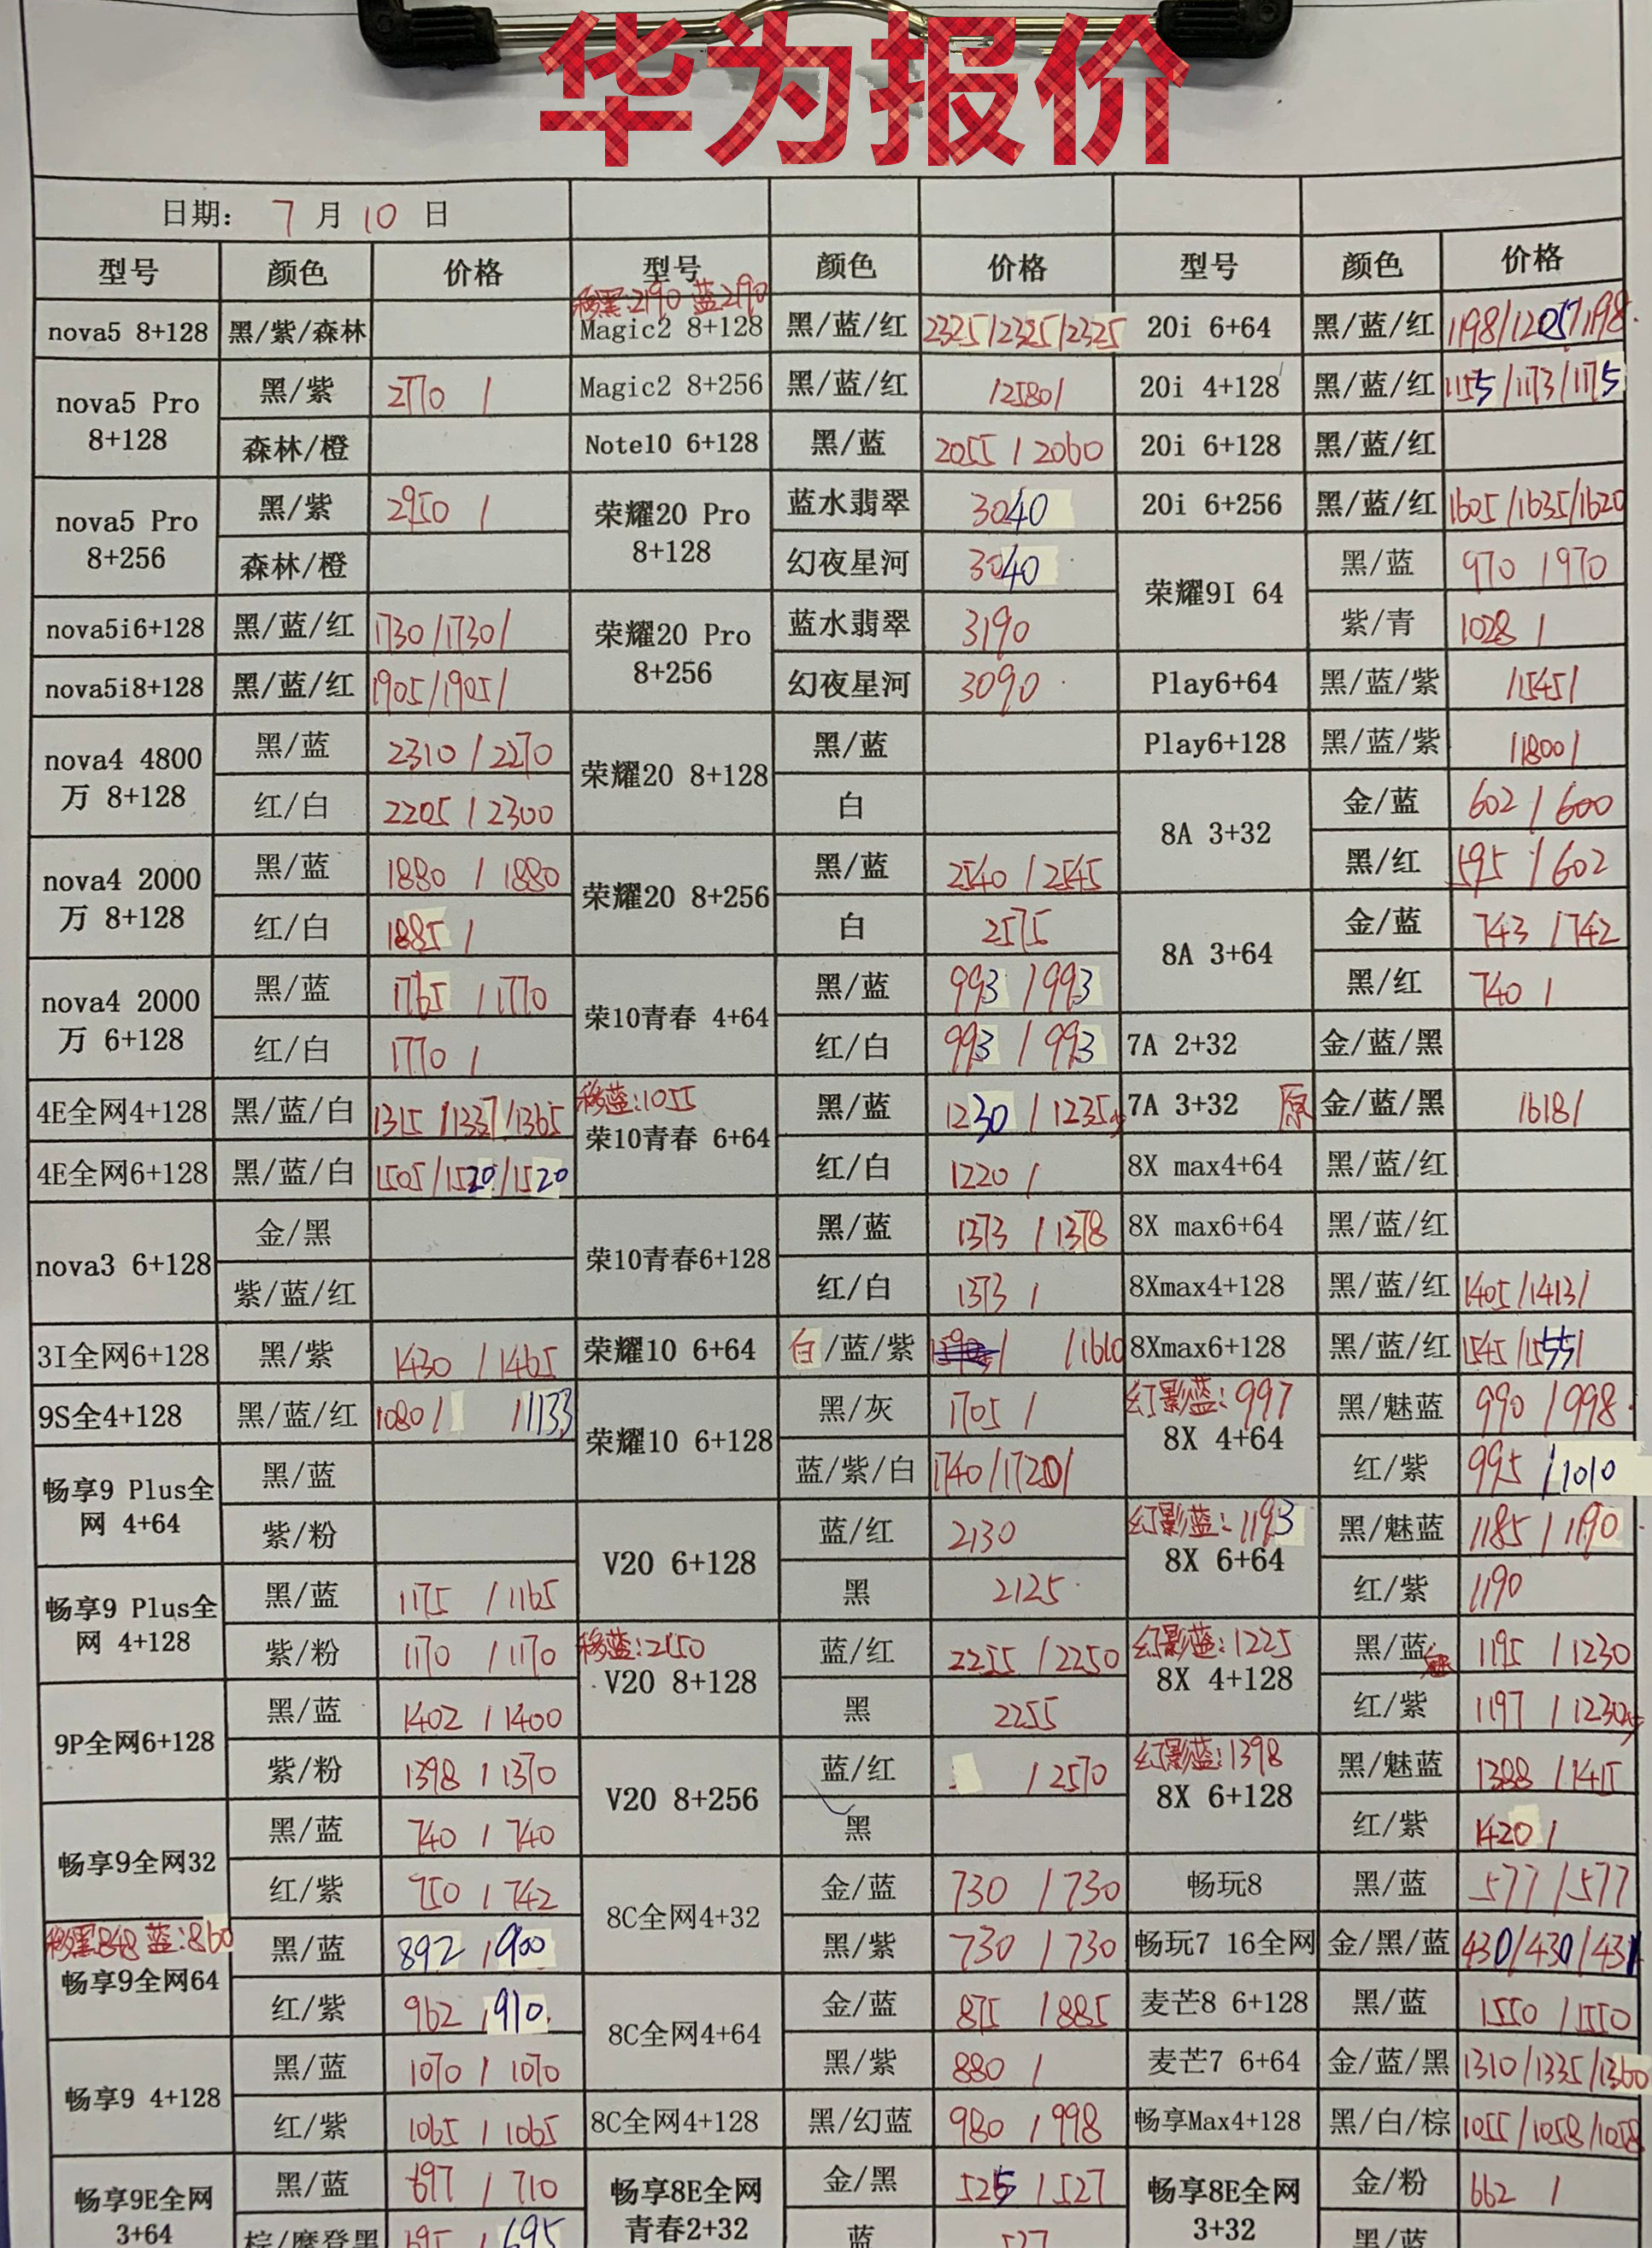 华为报价
日期: 7 月 10 日
型号 颜色 价格 型号 颜色 价格 型号 颜色 价格
移黑:2190 蓝2190
nova5 8+128 黑/紫/森林 Magic2 8+128 黑/蓝/红 2325/2325/2325 20i 6+64 黑/蓝/红 1198/1205/1198
nova5 Pro 8+128 黑/紫 2770 / Magic2 8+256 黑/蓝/红 /2580/ 20i 4+128 黑/蓝/红 1155/1173/1175
森林/橙 Note10 6+128 黑/蓝 2055 / 2060 20i 6+128 黑/蓝/红
nova5 Pro 8+256 黑/紫 2950 / 荣耀20 Pro 8+128 蓝水翡翠 3040 20i 6+256 黑/蓝/红 1605/1635/1620
森林/橙 幻夜星河 3040 荣耀9I 64 黑/蓝 970 / 970
nova5i6+128 黑/蓝/红 1730/1730/ 荣耀20 Pro 8+256 蓝水翡翠 3190 紫/青 1028 /
nova5i8+128 黑/蓝/红 1905/1905/ 幻夜星河 3090 Play6+64 黑/蓝/紫 /1545/
nova4 4800万 8+128 黑/蓝 2310 / 2270 荣耀20 8+128 黑/蓝 Play6+128 黑/蓝/紫 /1800/
红/白 2205 / 2300 白 8A 3+32 金/蓝 602 / 600
nova4 2000万 8+128 黑/蓝 1880 / 1880 荣耀20 8+256 黑/蓝 2540 / 2545 黑/红 595 / 602
红/白 1885 / 白 2575 8A 3+64 金/蓝 743 / 742
nova4 2000万 6+128 黑/蓝 1765 / 1770 荣10青春 4+64 黑/蓝 993 / 993 黑/红 740 /
红/白 1770 / 红/白 993 / 993 7A 2+32 金/蓝/黑
移蓝:1055
4E全网4+128 黑/蓝/白 1315/1337/1365 荣10青春 6+64 黑/蓝 1230 / 1235 7A 3+32 原 金/蓝/黑 /618/
4E全网6+128 黑/蓝/白 1505/1520/1520 红/白 1220 / 8X max4+64 黑/蓝/红
nova3 6+128 金/黑 荣10青春6+128 黑/蓝 1373 / 1378 8X max6+64 黑/蓝/红
紫/蓝/红 红/白 1373 / 8Xmax4+128 黑/蓝/红 1405/1413/
3I全网6+128 黑/紫 1430 / 1465 荣耀10 6+64 白/蓝/紫 / /1610 8Xmax6+128 黑/蓝/红 1545/1555/
9S全4+128 黑/蓝/红 1080/ /1133 荣耀10 6+128 黑/灰 1705 / 幻影蓝:997 8X 4+64 黑/魅蓝 990 / 998
畅享9 Plus全网 4+64 黑/蓝 蓝/紫/白 1740/1720/ 红/紫 995 / 1010
紫/粉 V20 6+128 蓝/红 2130 幻影蓝:1193 8X 6+64 黑/魅蓝 1185 / 1190
畅享9 Plus全网 4+128 黑/蓝 1175 / 1165 黑 2125 红/紫 1190
紫/粉 1170 / 1170 移蓝:2150 V20 8+128 蓝/红 2255 / 2250 幻影蓝:1225 8X 4+128 黑/蓝 1195 / 1230
9P全网6+128 黑/蓝 1402 / 1400 黑 2255 红/紫 1197 / 1230
紫/粉 1398 / 1370 V20 8+256 蓝/红 / 2570 幻影蓝:1398 8X 6+128 黑/魅蓝 1388 / 1415
畅享9全网32 黑/蓝 740 / 740 黑 红/紫 1420 /
红/紫 750 / 742 8C全网4+32 金/蓝 730 / 730 畅玩8 黑/蓝 577 / 577
移黑848 蓝:860
畅享9全网64 黑/蓝 892 / 900 黑/紫 730 / 730 畅玩7 16全网 金/黑/蓝 430/430/431
红/紫 962 / 910 8C全网4+64 金/蓝 875 / 885 麦芒8 6+128 黑/蓝 1550 / 1550
畅享9 4+128 黑/蓝 1070 / 1070 黑/紫 880 / 麦芒7 6+64 金/蓝/黑 1310/1335/1360
红/紫 1065 / 1065 8C全网4+128 黑/幻蓝 980 / 998 畅享Max4+128 黑/白/棕 1055/1058/1058
畅享9E全网 3+64 黑/蓝 697 / 710 畅享8E全网青春2+32 金/黑 525 / 527 畅享8E全网 3+32 金/粉 662 /
棕/摩登黑 695 / 695 蓝 527 黑/蓝